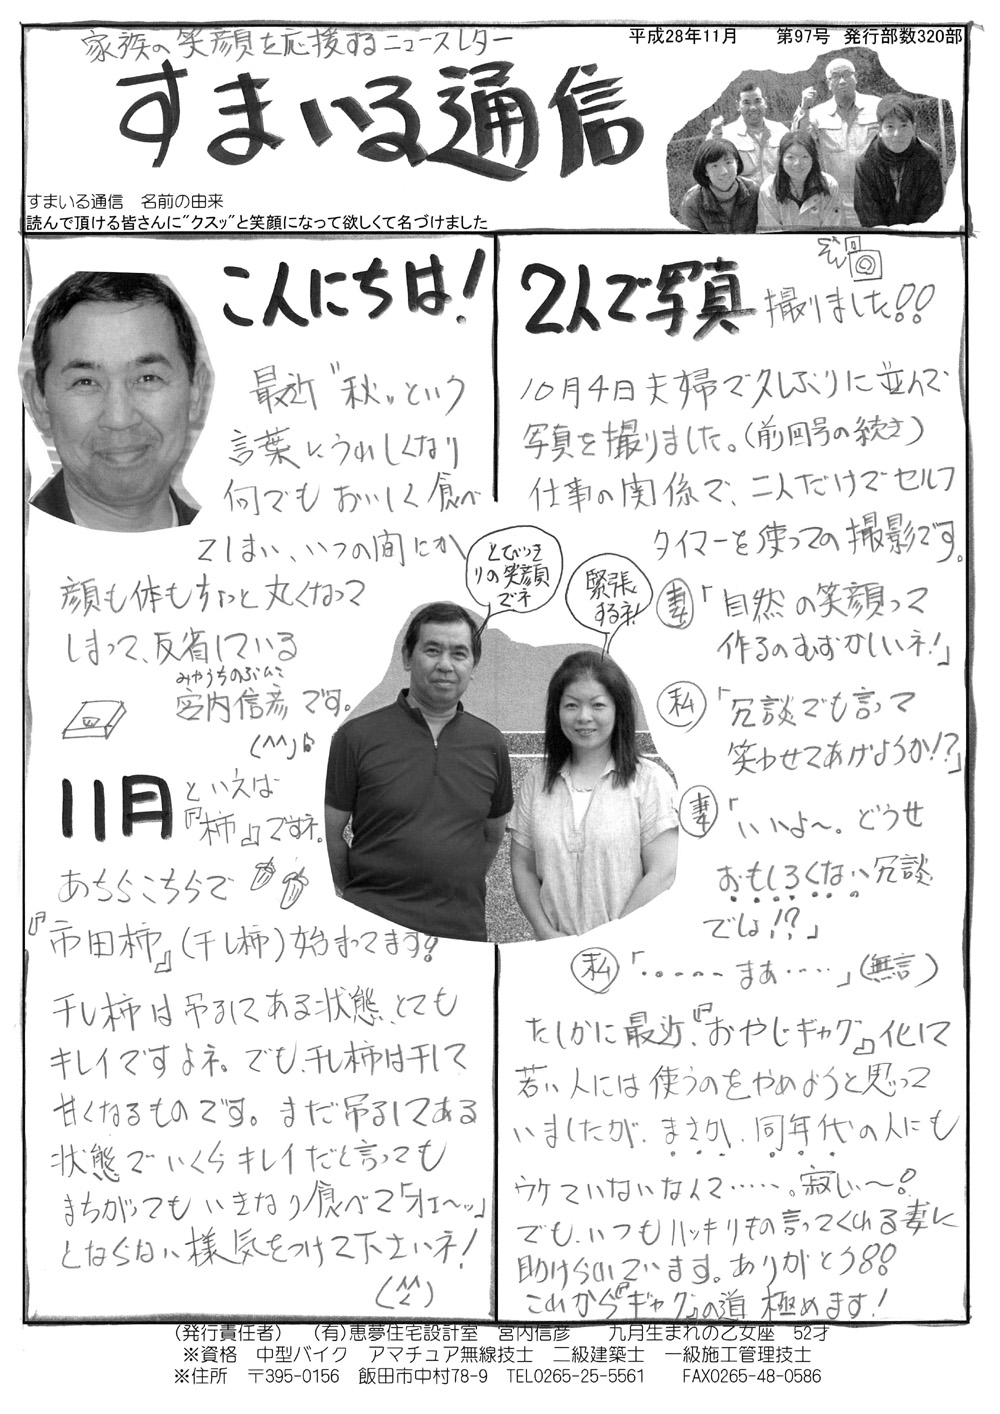 家族の笑顔を応援するニュースレター
平成28年11月　第97号　発行部数320部
すまいる通信
すまいる通信　名前の由来
読んで頂ける皆さんに"クスッ"と笑顔になって欲しくて名づけました
こんにちは!
最近"秋"という
言葉にうれしくなり
何でもおいしく食べ
てしまい、いつの間にか
顔も体もちょっと丸くなって
しまって、反省している
みやうちのぶひこ
宮内信彦です。
(^^)
11月といえば
『柿』ですネ。
あちらこちらで
『市田柿』(干し柿)始まってます!
干し柿は吊るしてある状態、とても
キレイですよネ。でも、干し柿は干して
甘くなるものです。まだ吊るしてある
状態でいくらキレイだと言っても
まちがっても いきなり食べて「オエ〜ッ」
とならない様気をつけて下さいネ!
とびっき
りの笑顔
でネ
緊張
するネ!
2人で写真 撮りました!!
10月4日夫婦で久しぶりに並んで
写真を撮りました。(前回号の続き)
仕事の関係で、二人だけでセルフ
タイマーを使っての撮影です。
妻「自然の笑顔って
作るのむずかしいネ!」
私「冗談でも言って
笑わせてあげようか!?」
妻「いいよ〜。どうせ
おもしろくない冗談
でしょ!?」
私「・・・・・まあ・・・・」(無言)
たしかに最近、『おやじギャグ』化して
若い人には使うのをやめようと思って
いましたが、まさか、同年代の人にも
ウケていないなんて・・・・・。寂しい〜!
でも、いつもハッキリもの言ってくれる妻に
助けられています。ありがとう!!
これから『ギャグ』の道 極めます!
(発行責任者)　(有)恵夢住宅設計室　宮内信彦　九月生まれの乙女座　52才
※資格　中型バイク　アマチュア無線技士　二級建築士　一級施工管理技士
※住所　〒395-0156　飯田市中村78-9　TEL0265-25-5561　FAX0265-48-0586